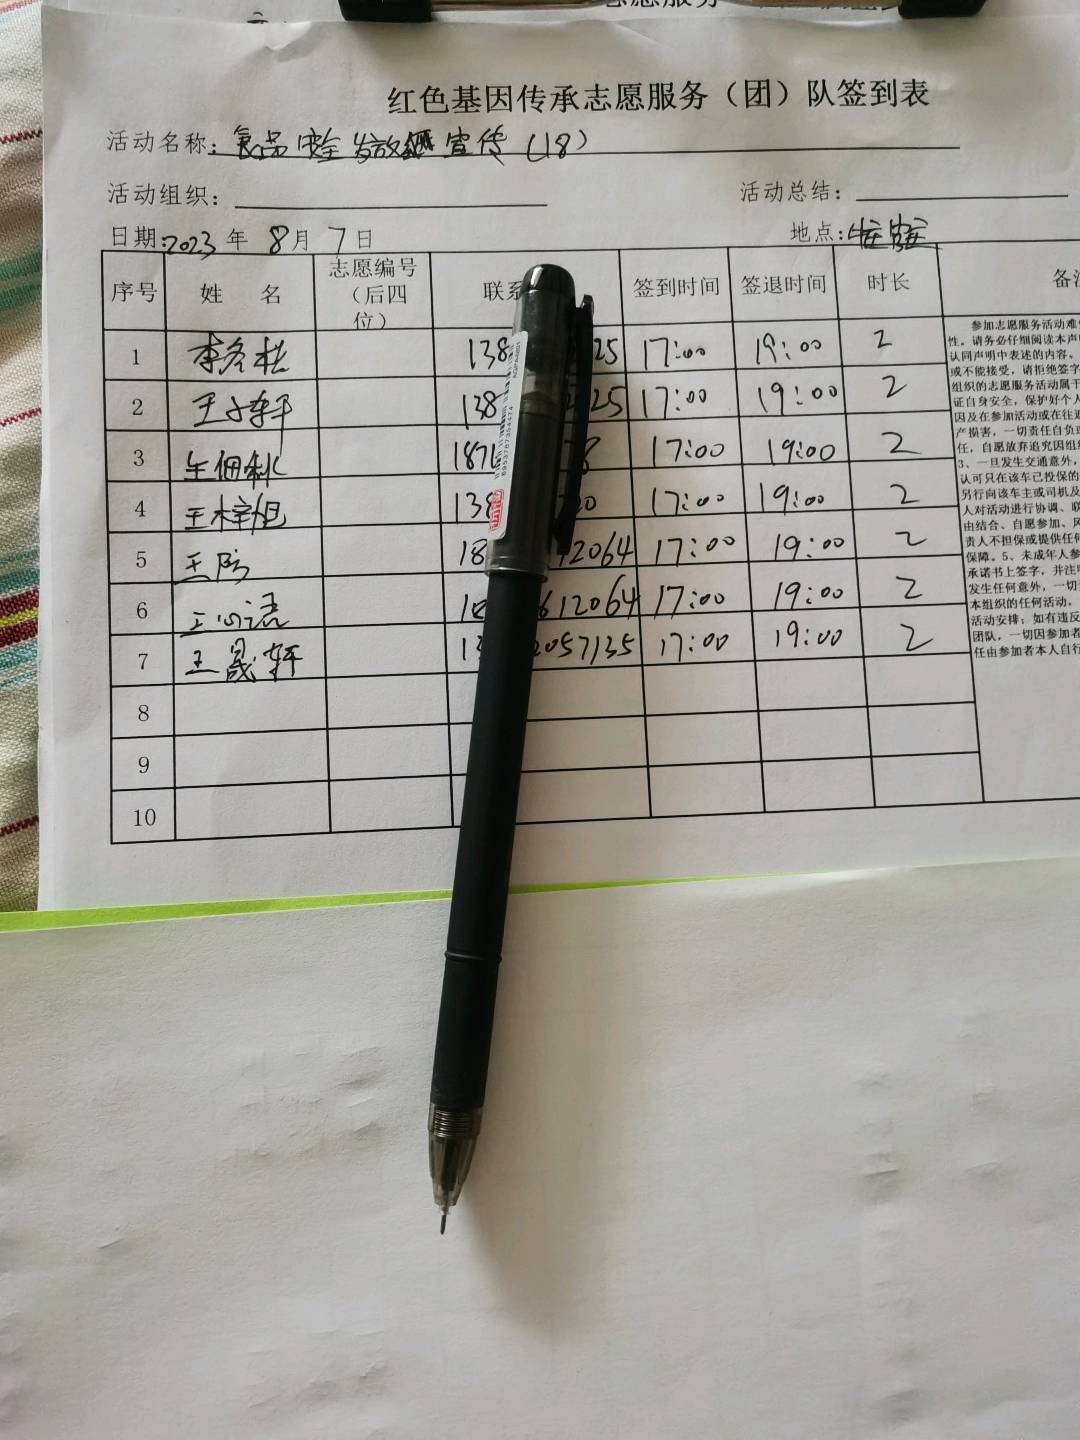 红色基因传承志愿服务（团）队签到表
活动名称：食品安全发放 宣传（18）
活动组织：
活动总结：
日期：2023 年 8 月 7 日
地点：
序号 姓 名 志愿编号（后四位） 联系 签到时间 签退时间 时长 备注
1 李冬松 138 25 17:00 19:00 2
2 王子轩 138 25 17:00 19:00 2
3 187 8 17:00 19:00 2
4 王梓旭 138 20 17:00 19:00 2
5 18 12064 17:00 19:00 2
6 王心语 612064 17:00 19:00 2
7 王晟轩 13 2057135 17:00 19:00 2
8
9
10
参加志愿服务活动难
性。请务必仔细阅读本声
认同声明中表述的内容，
或不能接受，请拒绝签字
组织的志愿服务活动属于
证自身安全，保护好个人
因及在参加活动或在往返
产损害，一切责任自负
任，自愿放弃追究因组织
3、一旦发生交通意外，
认可只在该车已投保的
另行向该车主或司机及
人对活动进行协调、联
由结合、自愿参加、风
责人不担保或提供任何
保障。5、未成年人参
承诺书上签字，并注明
发生任何意外，一切
本组织的任何活动，
活动安排；如有违反
团队，一切因参加者
任由参加者本人自行